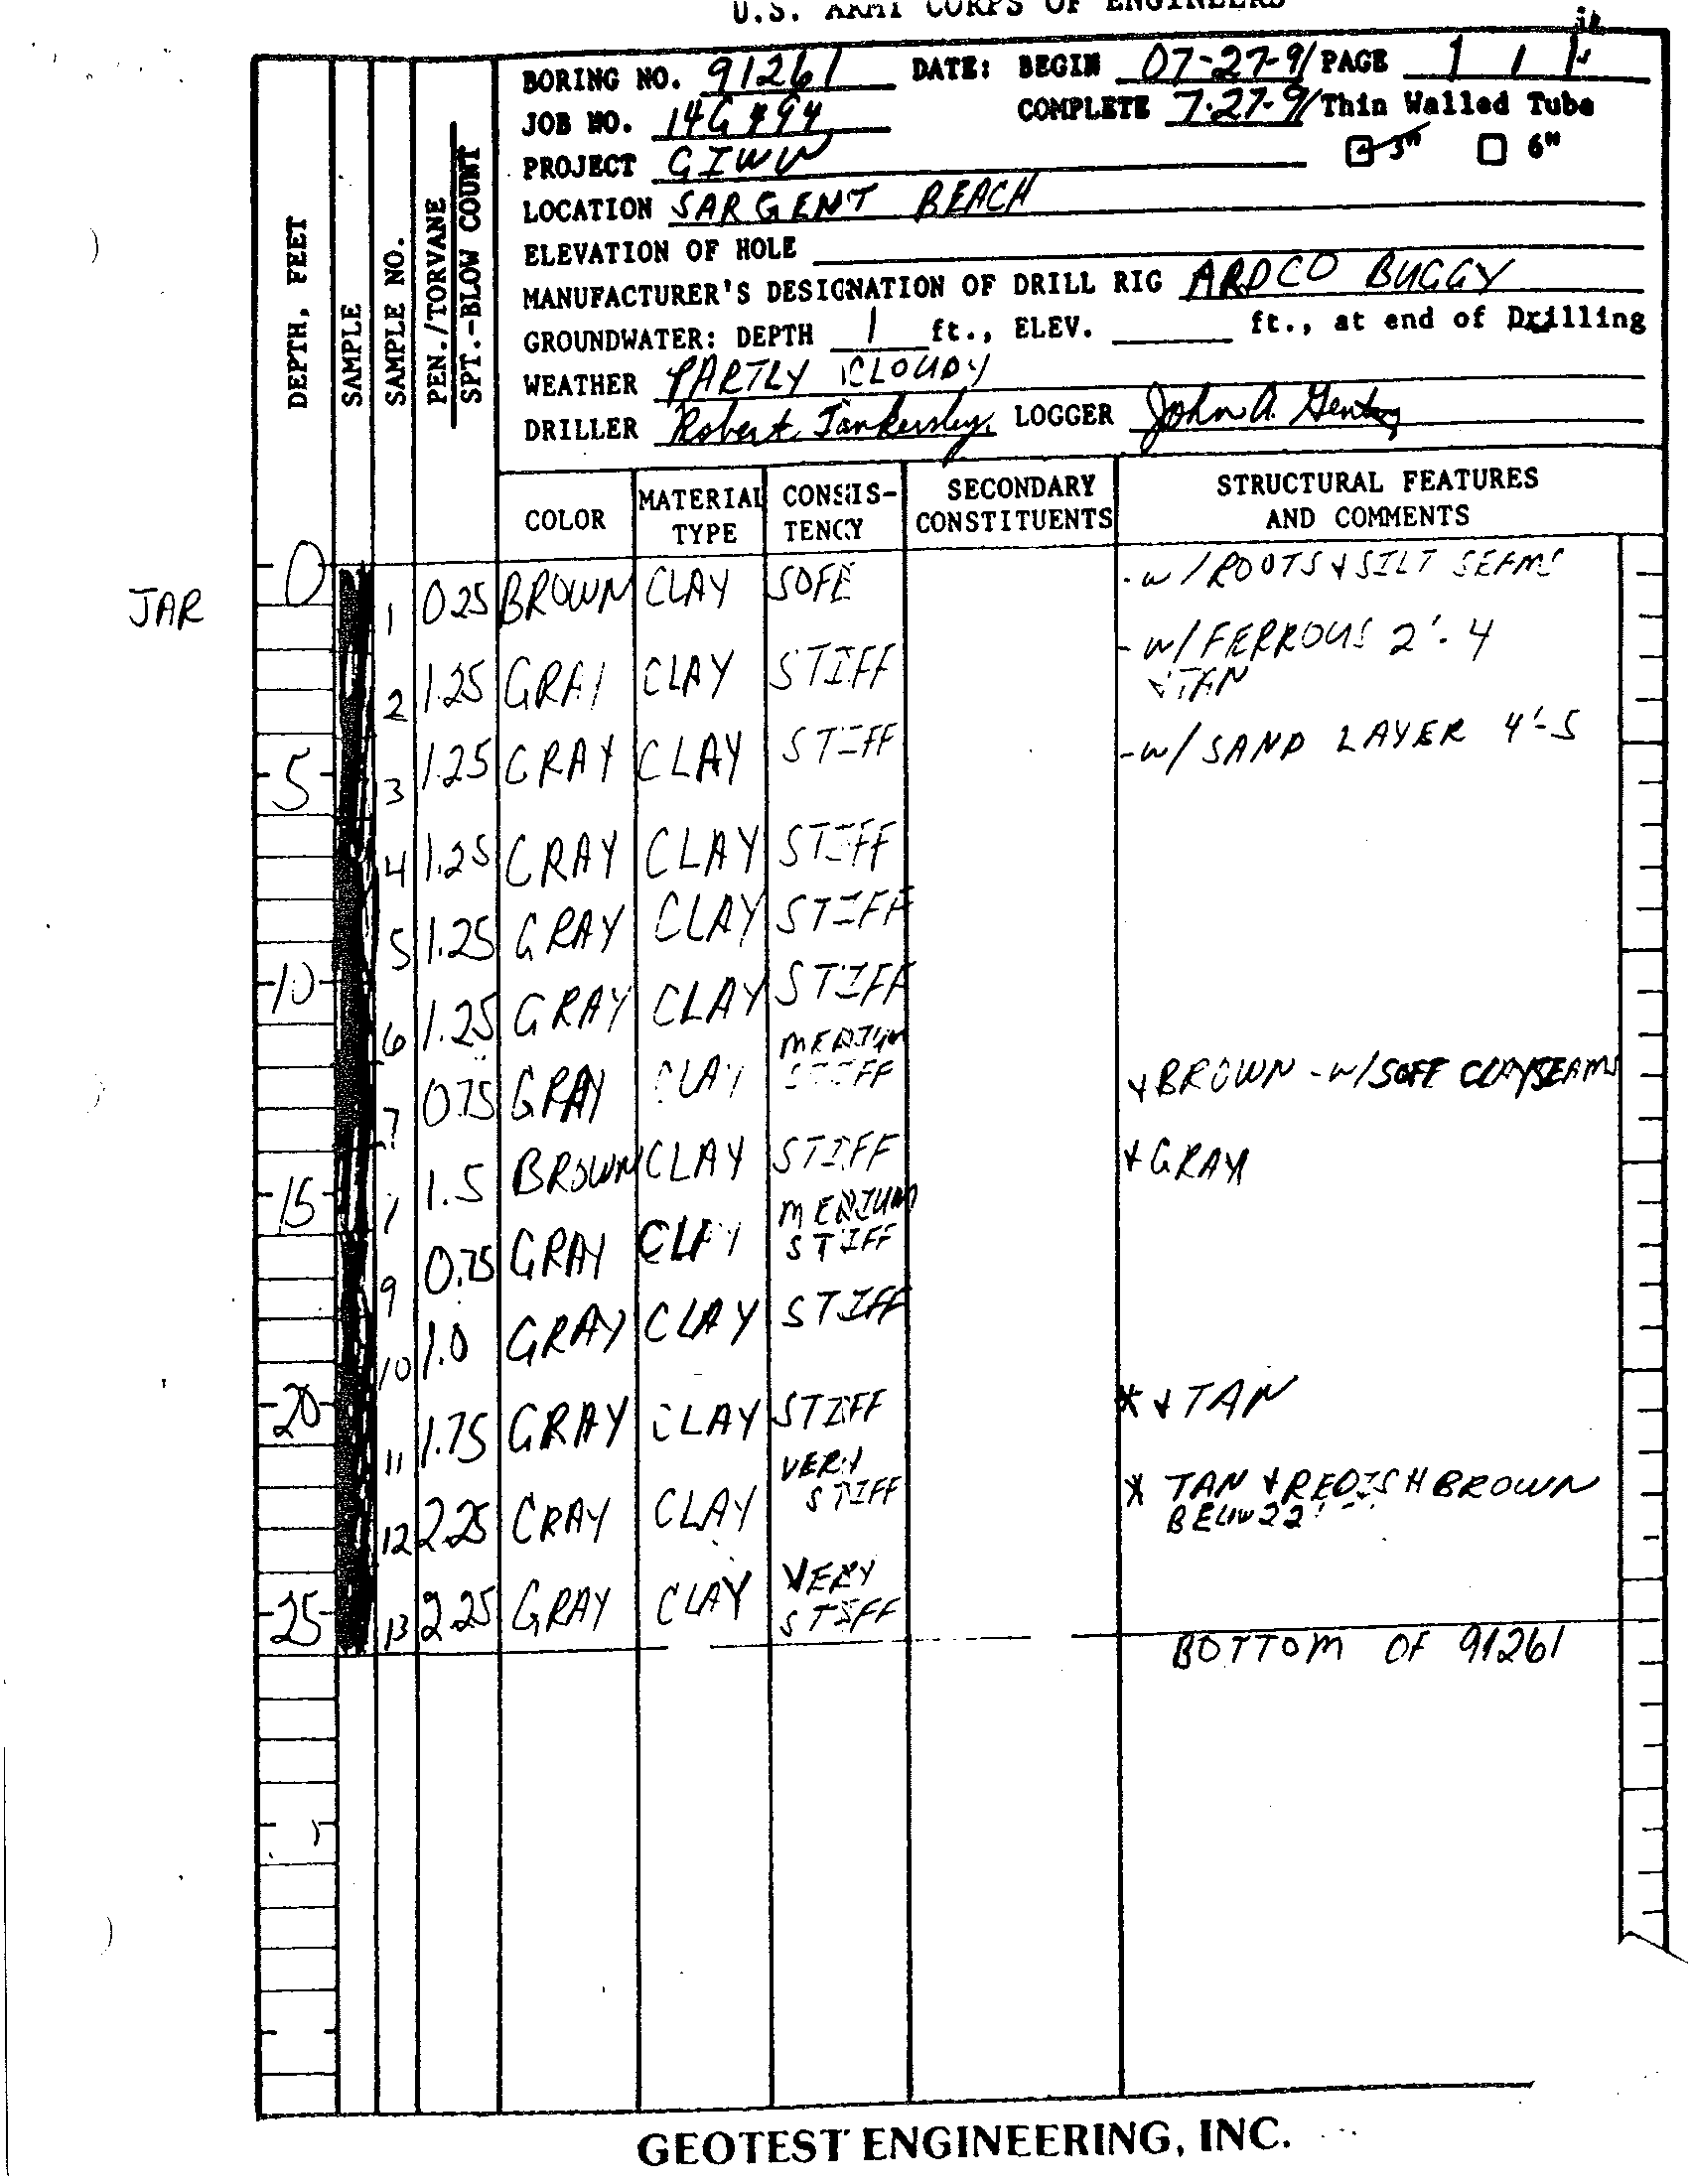 U.S. ARMY CORPS OF ENGINEERS
BORING NO. 91261 DATE: BEGIN 07-27-91 PAGE 1 / 1
JOB NO. COMPLETE 7-27-91 Thin Walled Tube
PROJECT GIWW 3" 6"
LOCATION SARGENT BEACH
ELEVATION OF HOLE
MANUFACTURER'S DESIGNATION OF DRILL RIG ARDCO BUGGY
GROUNDWATER: DEPTH 1 ft., ELEV. ft., at end of Drilling
WEATHER PARTLY CLOUDY
DRILLER Robert Tankersley LOGGER John A. Gentry
DEPTH, FEET
SAMPLE
SAMPLE NO.
PEN./TORVANE
SPT.-BLOW COUNT
COLOR
MATERIAL TYPE
CONSIS-TENCY
SECONDARY CONSTITUENTS
STRUCTURAL FEATURES AND COMMENTS
0
JAR 1 0.25 BROWN CLAY SOFT -w/ROOTS & SILT SEAMS
2 1.25 GRAY CLAY STIFF -w/FERROUS 2'-4
& TAN
5 3 1.25 GRAY CLAY STIFF -w/ SAND LAYER 4'-5
4 1.25 GRAY CLAY STIFF
5 1.25 GRAY CLAY STIFF
10 6 1.25 GRAY CLAY STIFF
7 0.75 GRAY CLAY MEDIUM STIFF & BROWN -w/SOFT CLAY SEAMS
15 1.5 BROWN CLAY STIFF & GRAY
9 0.75 GRAY CLAY MEDIUM STIFF
10 1.0 GRAY CLAY STIFF
20 11 1.75 GRAY CLAY STIFF * & TAN
12 2.25 GRAY CLAY VERY STIFF * TAN & REDISH BROWN
BELOW 22'
25 13 2.25 GRAY CLAY VERY STIFF
BOTTOM OF 91261
GEOTEST ENGINEERING, INC.